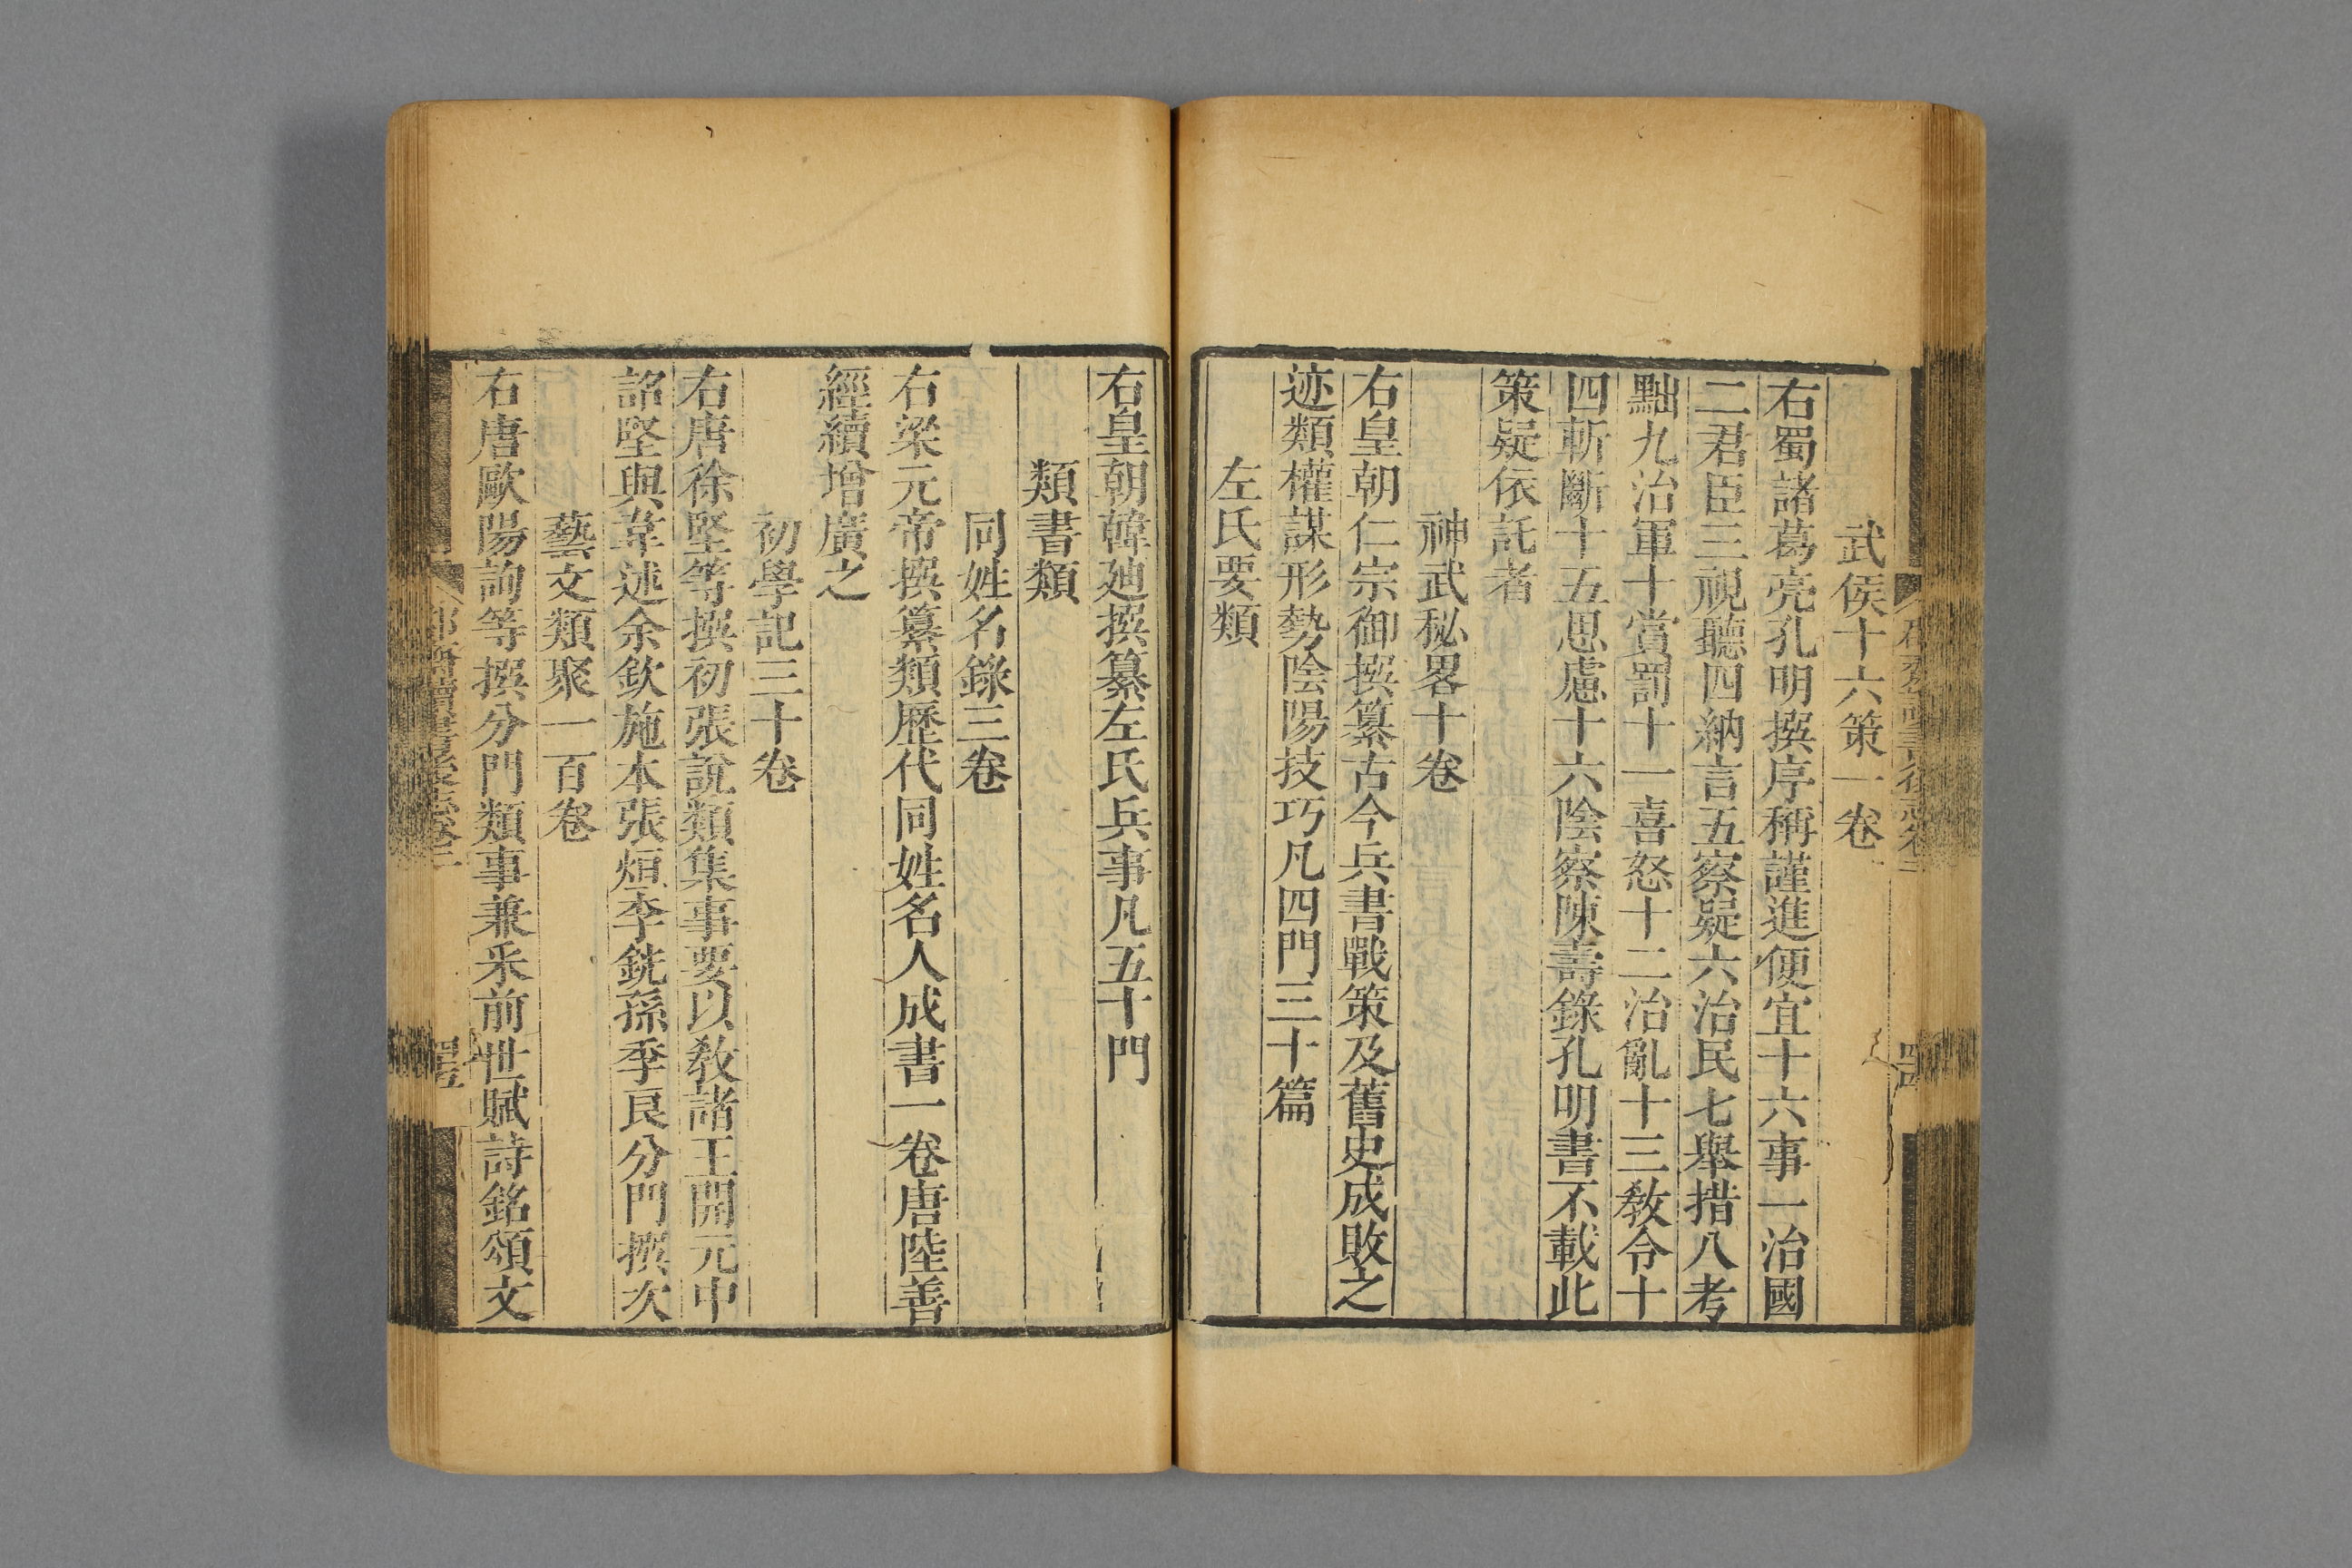 武侯十六策一卷
右蜀諸葛亮孔明撰序稱謹進便宜十六事一治國
二君臣三視聽四納言五察疑六治民七舉措八考
黜九治軍十賞罰十一喜怒十二治亂十三教令十
四斬斷十五思慮十六陰察陳壽錄孔明書不載此
策疑依託者
神武秘畧十卷
右皇朝仁宗御撰纂古今兵書戰策及舊史成敗之
迹類權謀形勢陰陽技巧凡四門三十篇
左氏要類
右皇朝韓廸撰纂左氏兵事凡五十門
類書類
同姓名錄三卷
右梁元帝撰纂類歷代同姓名人成書一卷唐陸善
經續增廣之
初學記三十卷
右唐徐堅等撰初張說類集事要以教諸王開元中
詔堅與韋述余欽施本張烜李銳孫季良分門撰次
藝文類聚一百卷
右唐歐陽詢等撰分門類事兼采前世賦詩銘頌文